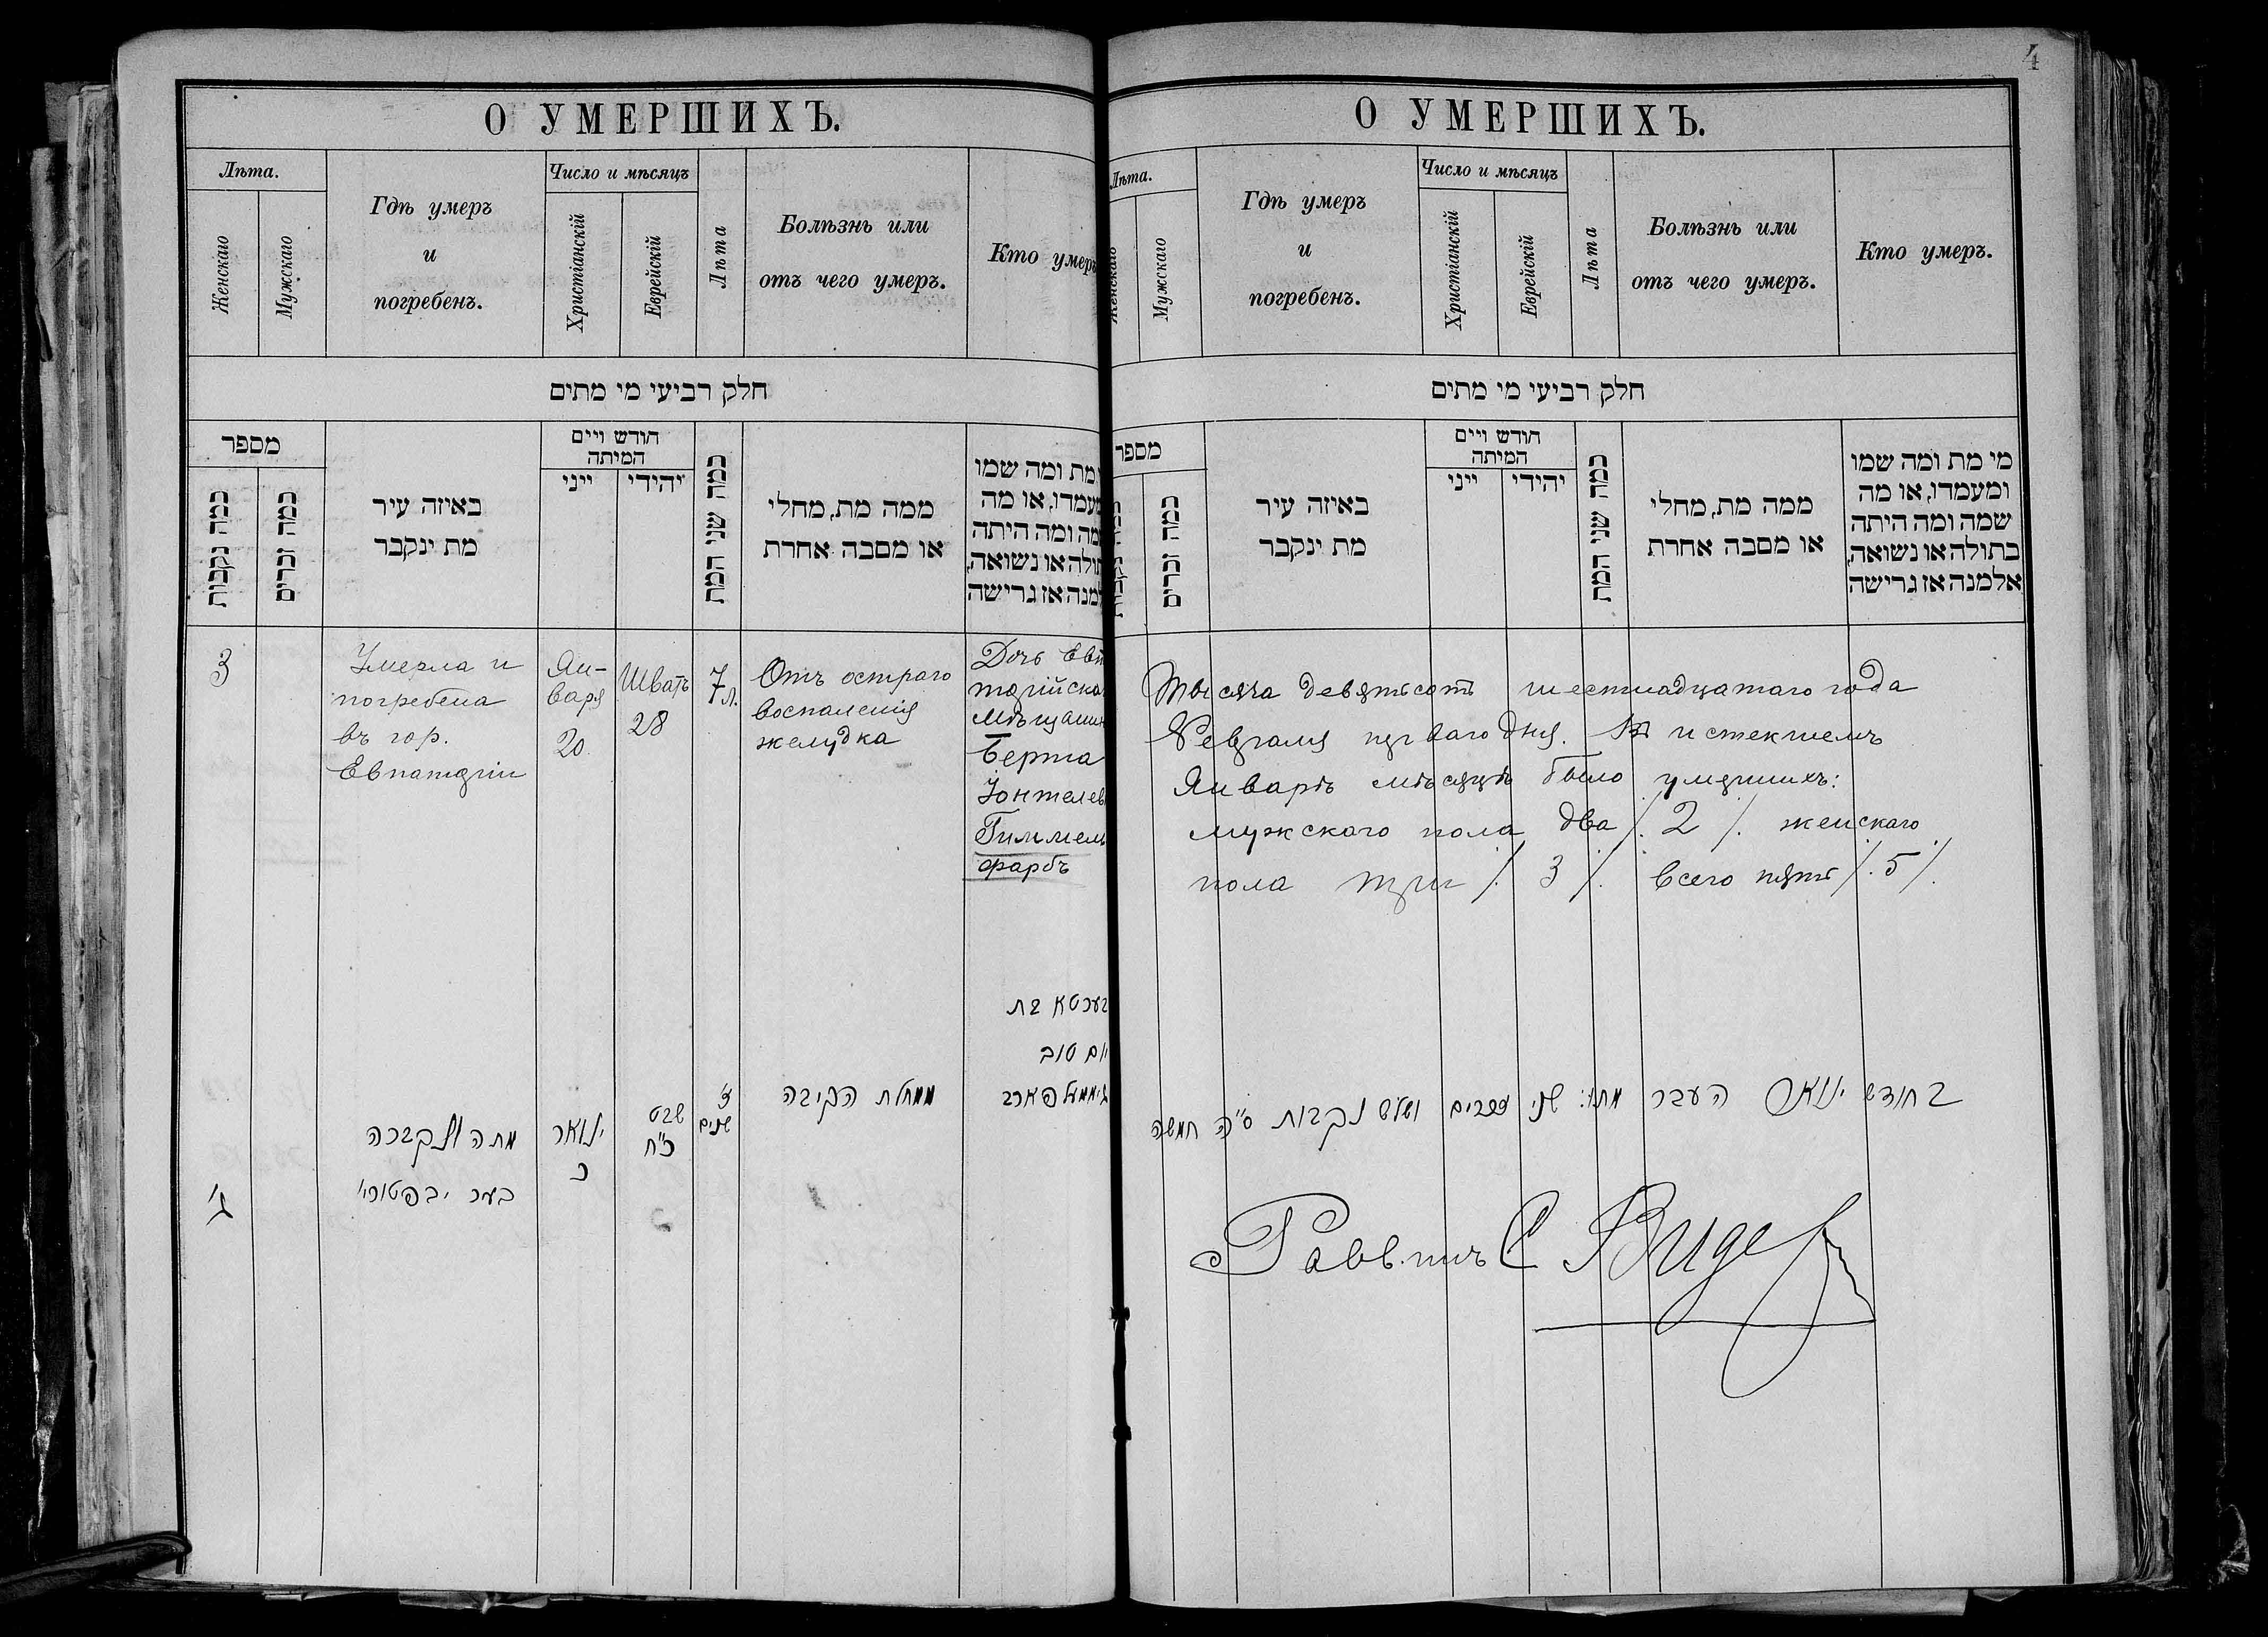 4
О УМЕРШИХЪ.
Лѣта.
Женскаго
Мужскаго
Гдѣ умеръ
и
погребенъ.
Число и мѣсяцъ
Христіанскій
Еврейскій
Лѣта
Болѣзнь или
отъ чего умеръ.
Кто умеръ
חלק רביעי מי מתים
מספר
כמה נקבות
כמה זכרים
באיזה עיר
מת ינקבר
חודש ויים
המיתה
ייני
יהודי
כמה שני המת
ממה מת, מחלי
או מסבה אחרת
מת ומה שמו
מעמדו, או מה
מה ומה היתה
תולה או נשואה,
מנה אז גרישה
3
Умерла и
погребена
въ гор.
Евпаторіи
Ян-
варя
20
Шватъ
28
7 л.
Отъ остраго
воспаленія
желудка
Дочь Евп
торійска
Мѣщанин
Берта
Іонтелев
Гиммель
фарбъ
ג'
מתה ונקברה
בער יבפטוריי
ינואר
כ
שבט
כ"ח
ז'
שנים
ממחלת הקיבה
בערטא בת
יום טוב
גיממעלפארב
О УМЕРШИХЪ.
Лѣта.
Женскаго
Мужскаго
Гдѣ умеръ
и
погребенъ.
Число и мѣсяцъ
Христіанскій
Еврейскій
Лѣта
Болѣзнь или
отъ чего умеръ.
Кто умеръ.
חלק רביעי מי מתים
מספר
כמה נקבות
כמה זכרים
באיזה עיר
מת ינקבר
חודש ויים
המיתה
ייני
יהודי
כמה שני המת
ממה מת, מחלי
או מסבה אחרת
מי מת ומה שמו
ומעמדו, או מה
שמה ומה היתה
בתולה או נשואה,
אלמנה אז גרישה
Тысяча девятьсотъ шестнадцатаго года
Февраля перваго дня. Въ истекшемъ
Январѣ мѣсяцѣ было умершихъ:
мужскаго пола два /. 2 /. женскаго
пола три /. 3 /. всего пять /. 5 /.
בחודש ינואר העבר מתו: שני זכרים ושלש נקבות ס"ה חמשה
Раввинъ С Видер